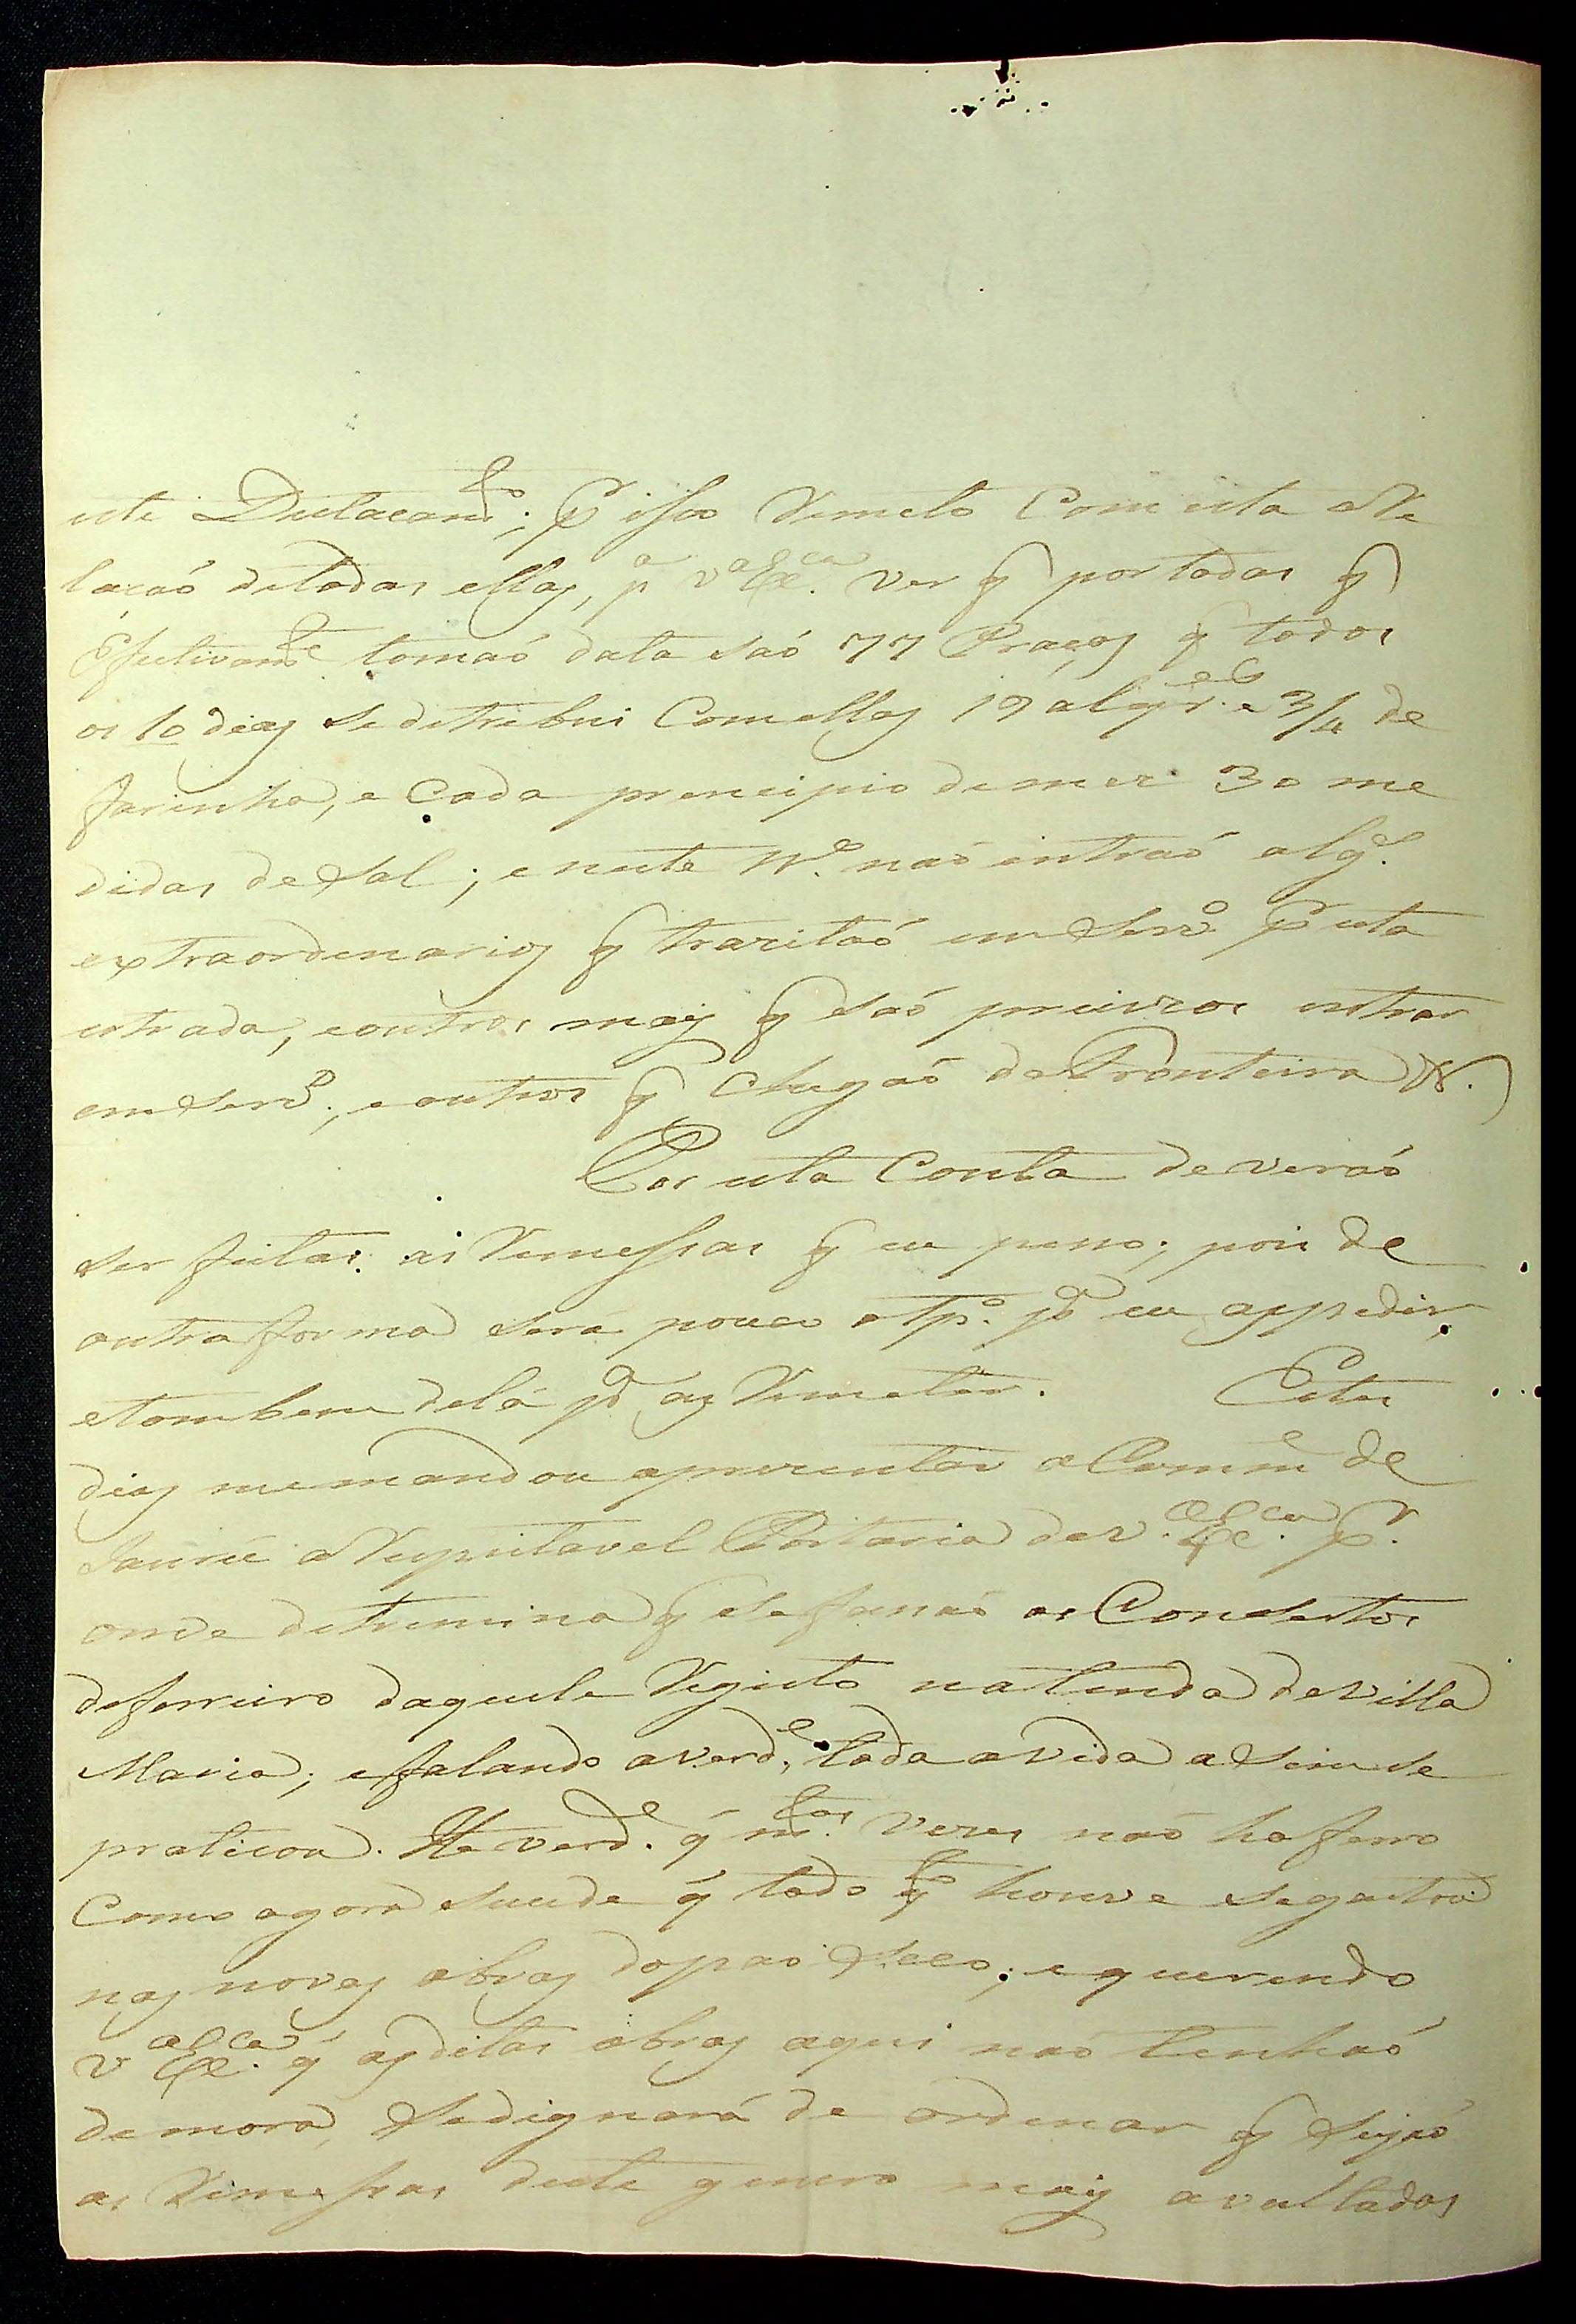 este Destacamto; pr isso Remeto Com esta a Re
laçaó detodas ellas, pa va Exca. ver q portodas q
Efectivamte tomaó data saó 77 Praças q todos
os 10 dias se destribui Comellas 19 alqres. e 3/4 de
farinha, e Cada principio demez 30 me
didas de Sal; eneste No. naó entraó algs.
extraordenarios q tranzitaó em Servo. pr esta
estrada, eoutros mais q saó precizos entrar
em Servo., eoutros q Chegaó da Fronteira &.
Por esta Conta deveraó
ser feitas as Remessas q eu pesso; pois de
outra forma será pouco otpo. pa eu appedir,
etambem delá pa as Remeter. Estes
dias memandou aprezentar o Comme de
Jaurú a Respeitavel Portaria de V. Exca. pr.
onde detremina q sefassaó os Consertos
deferreiro daquele Registo natenda de Villa
Maria; efalando averde, toda avida aSim se
praticou. He verde. q mtas. vezes naó ha ferro
Como agora sucede q todo qto houve segastou
nas novas obras do páo Seco; equerendo
V Exca. q asditas obras aqui naó tenhaó
demora, Sedignará de ordenar q Sejaó
as Remessas deste genero mais avultadas